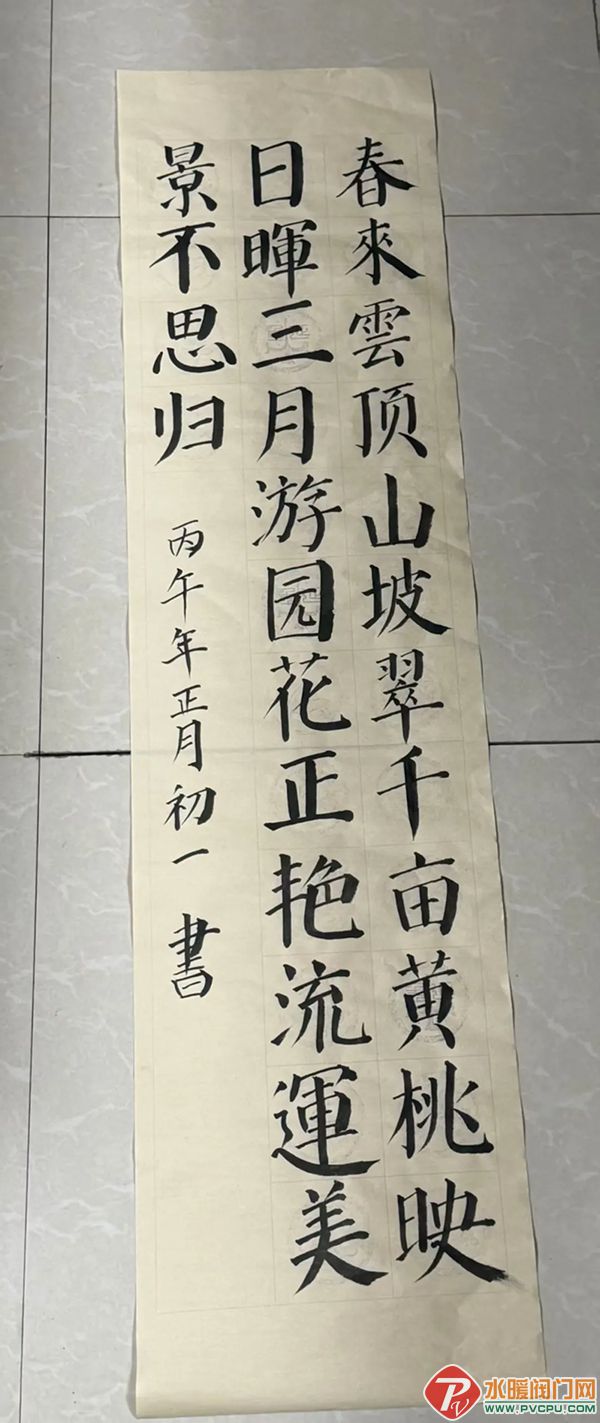 春來雲顶山坡翠千亩黄桃映
日暉三月游园花正艳流運美
景不思归
丙午年正月初一 書
水暖阀门网
WWW.PVCPU.COM